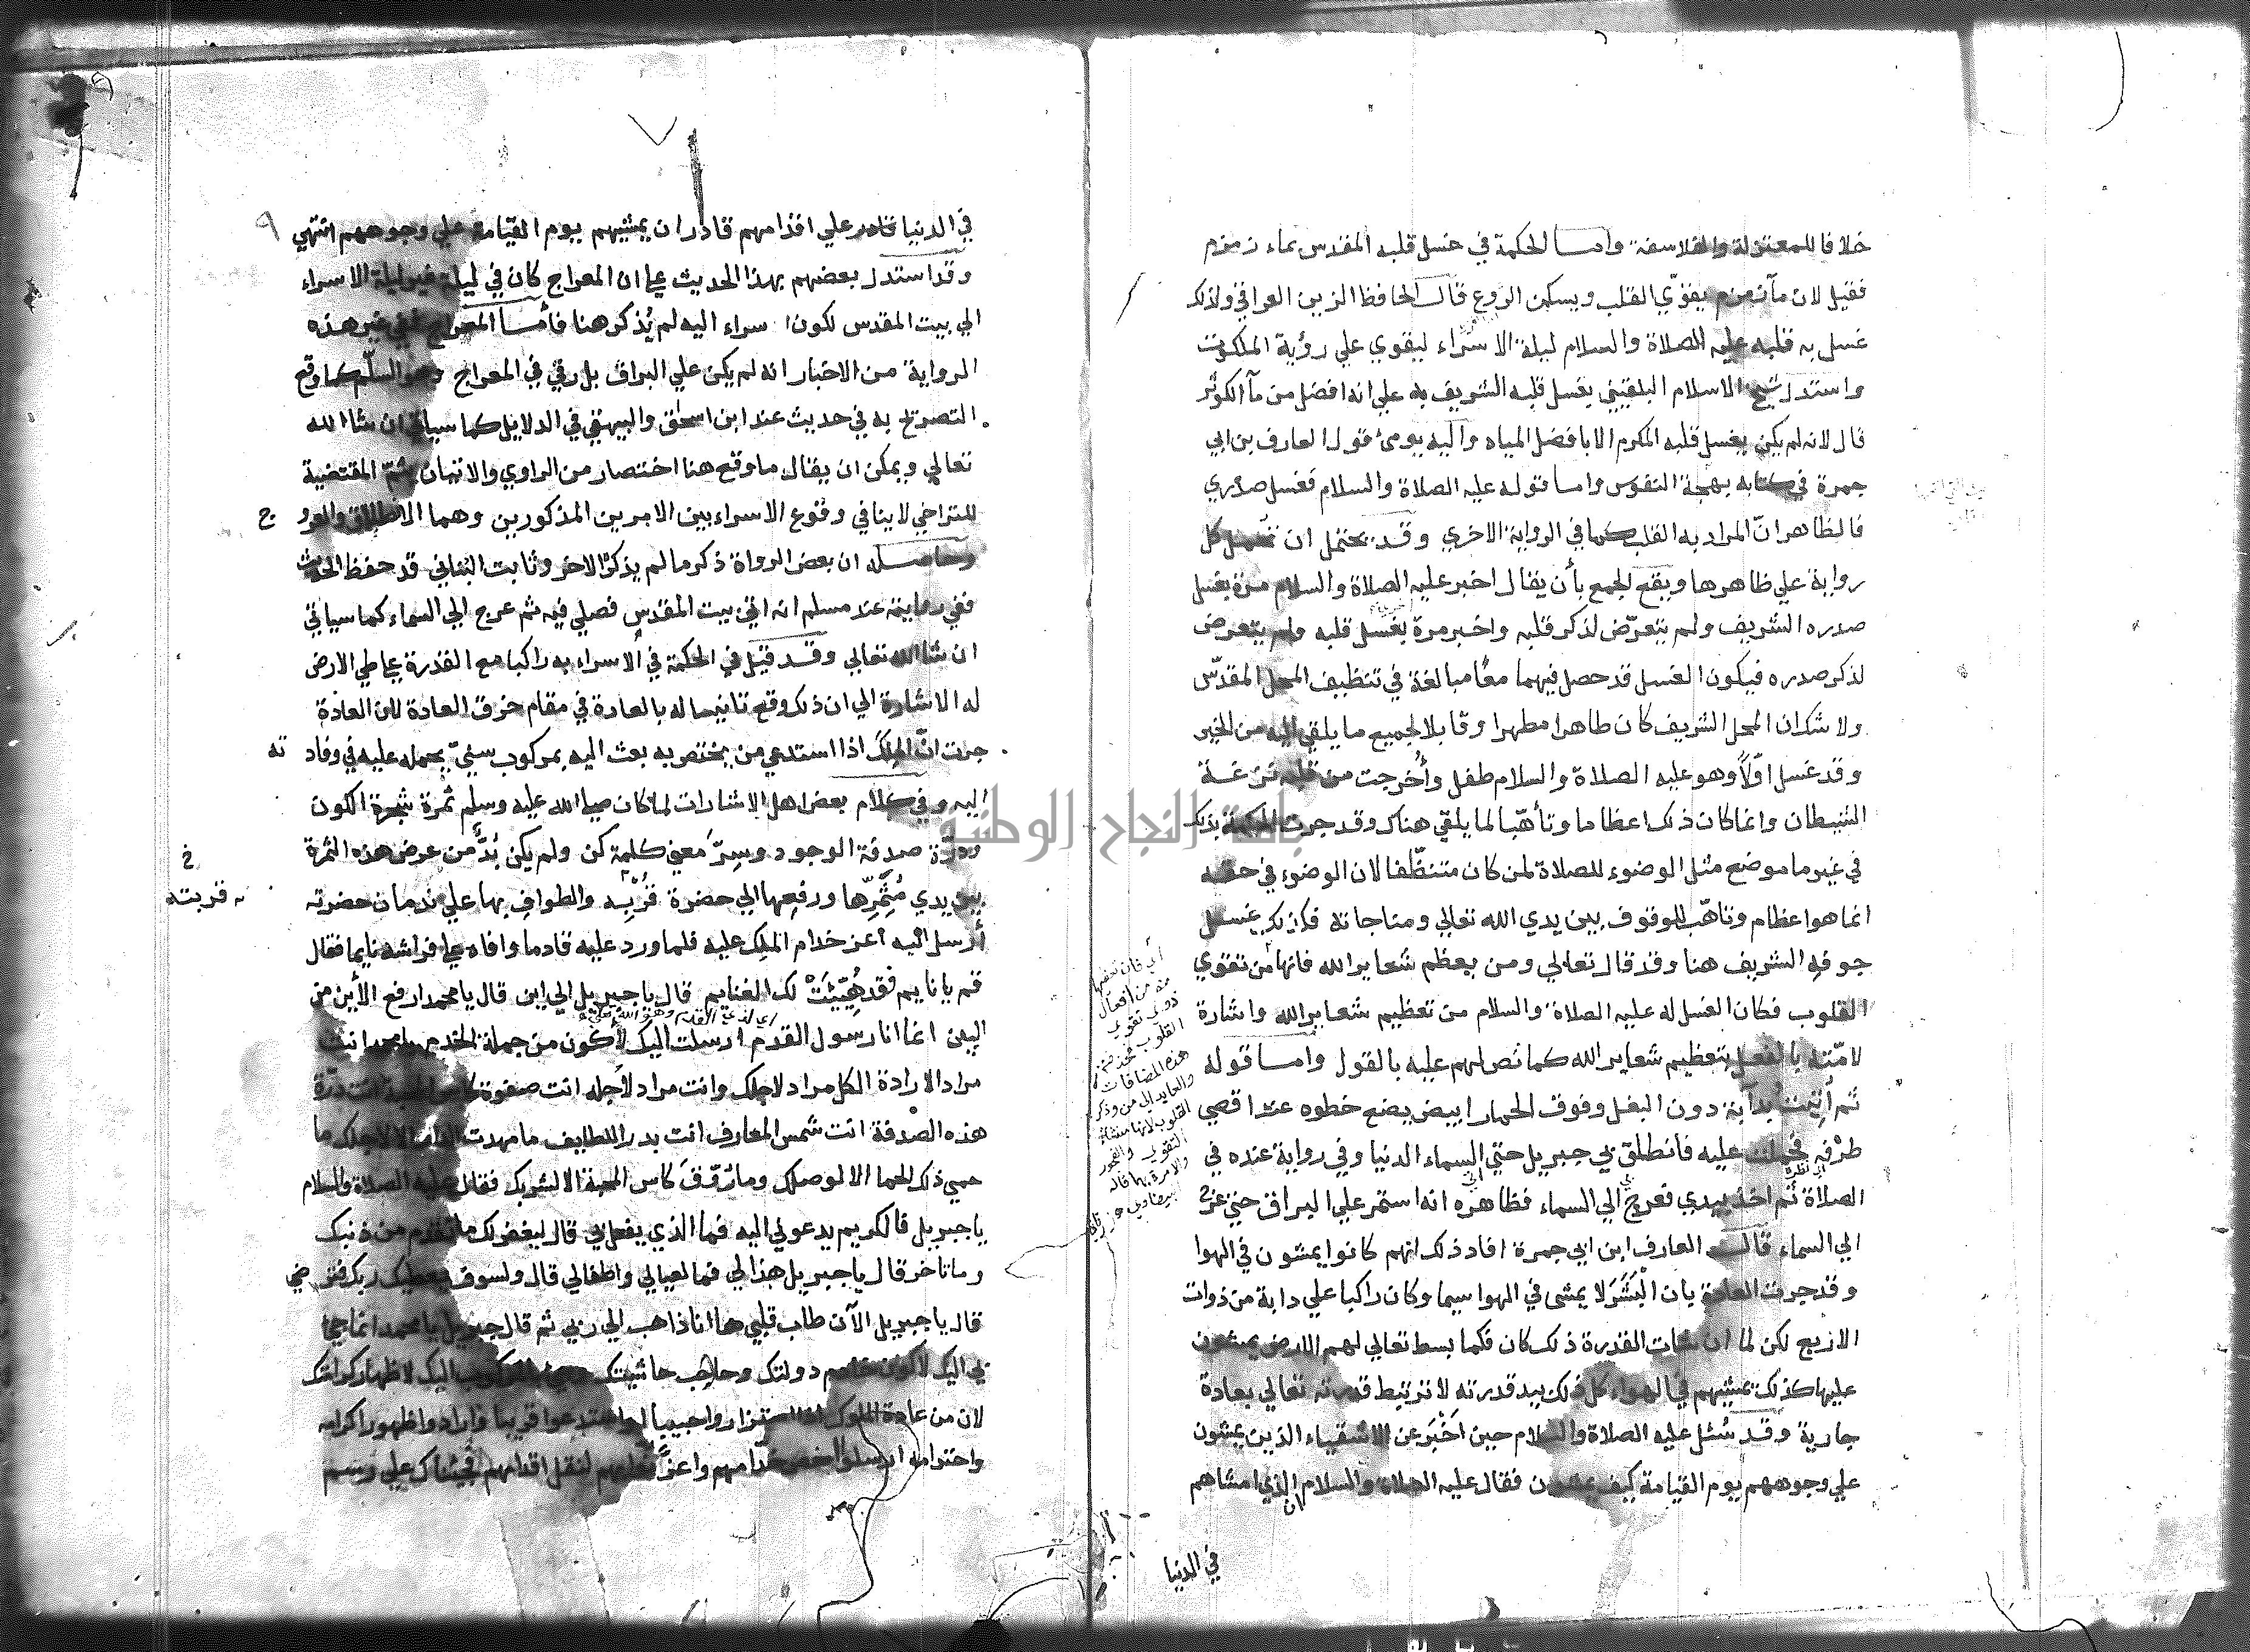 خلافا للمعتزلة والفلاسفة وامسا الحكمة في غسل قلبه المقدس بماء زمزم
فقيل لان مآء زمزم يقوّي القلب ويسكن الروع قال الحافظ الزين العراقي ولذلك
غسل به قلبه عليه الصلاة والسلام ليلة الاسراء ليقوي علي رؤية الملكوت
واستدل شيخ الاسلام البلقيني بغسل قلبه الشريف به علي انه افضل من مآ الكوثر
قال لانه لم يكن يغسل قلبه المكرم الا بافضل المياه واليه يومئ قول العارف بن ابي
جمرة في كتابه بهجة النفوس واما قوله عليه الصلاة والسلام فغسل صدري
فالظاهر انّ المراد به القلب كما في الرواية الاخري وقد يحتمل ان تحمل كل
رواية علي ظاهرها ويقع الجمع بأن يقال اخبر عليه الصلاة والسلام مرة بغسل
صدره الشريف ولم يتعرّض لذكر قلبه واخبر مرة بغسل قلبه ولم يتعرض
لذكر صدره فيكون الغسل قد حصل فيهما معًا مبالغة في تنظيف المحل المقدّس
ولا شك ان المحل الشريف كان طاهرا مطهرا وقابلا لجميع ما يلقي اليه من الخير
وقد غسل اوّلاً وهو عليه الصلاة والسلام طفل وأُخرجت من قلبه نزغة
الشيطان وانما كان ذلك اعظاما وتأهّبا لما يلقي هناك وقد جرت الحكمة بذلك
في غير ما موضع مثل الوضوء للصلاة لمن كان متنظّفا لان الوضوء في حقه
انما هو اعظام وتاهّب للوقوف بين يدي الله تعالي ومناجاته فكذلك غسل
جوفه الشريف هنا وقد قال تعالي ومن يعظم شعاير الله فانها من تقوي
القلوب فكان الغسل له عليه الصلاة والسلام من تعظيم شعاير الله واشارة
لامّته بالفعل بتعظيم شعاير الله كما نص لهم عليه بالقول وامسا قوله
ثم أُتيت بدآبة دون البغل وفوق الحمار ابيض يضع خطوه عند اقصي
طرْفه فحُملت عليه فانطلق بي جبريل حتي السماء الدنيا وفي رواية عنده في
الصلاة ثم اخذ بيدي فعرج الي السماء فظاهره انه استمر علي البراق حتي عرج
الي السماء قال العارف ابن ابي جمرة افاد ذلك انهم كانوا يمشون في الهوا
وقد جرت العادة بان البَشَر لا يمشي في الهوا سيما وكان راكبا علي دابة من ذوات
الاربع لكن لما ان شات القدرة ذلك كان فكما بسط تعالي لهم الارض يمشون
عليها كذلك يمشيهم في الهواء كل ذلك بيد قدرته لا ترتبط قدرته تعالي بعادة
جارية وقد سُئل عليه الصلاة والسلام حين اَخْبَر عن الاشقياء الذين يمشون
علي وجوههم يوم القيامة كيف يمشون فقال عليه الصلاة والسلام ان الذي امشاهم
في الدنيا
أي فان تعظيمها
منه من افعال
ذوي تقوي
القلوب فحذفت
هذه المضافات
والعايد الي من وذكر
القلوب لانها منشاء
التقوي والفجور
والامرة بها قاله
بيضاوي
في الدنيا قادر علي اقدامهم قادر ان يمشيهم يوم القيامة علي وجوههم انتهي ٩
وقد استدل بعضهم بهذا الحديث علي ان المعراج كان في ليلة غير ليلة الاسراء
الي بيت المقدس لكون الاسراء اليه لم يُذكر هنا فأمسا المعراج ففي غير هذه
الرواية من الاخبار انه لم يكن علي البراق بل رقي في المعراج وهو السلّم كما وقع
التصريح به في حديث عند ابن اسحٰق والبيهقي في الدلايل كما سياتي ان شا الله
تعالي ويمكن ان يقال ما وقع هنا اختصار من الراوي والاتيان بثمّ المقتضية
للتراخي لا ينافي وقوع الاسراء بين الامرين المذكورين وهما الانطلاق والعرو ج
وحاصله ان بعض الرواة ذكر ما لم يذكره الاخر وثابت البناني قد حفظ الحديث
ففي روايته عند مسلم انه اتي بيت المقدس فصلي فيه ثم عرج الي السماء كما سياتي
ان شا الله تعالي وقد قيل في الحكمة في الاسراء به راكبا مع القدرة علي طي الارض
له الاشارة الي ان ذلك وقع تانيسا له بالعادة في مقام خرق العادة لان العادة
جرت انّ الملِكَ اذا استدعي من يختص به بعث اليه بمركوب سنيّ يحمله عليه في وفاد ته
اليه وفي كلام بعض اهل الاشارات لما كان صلي الله عليه وسلم ثمرة شجرة الكون
ودرّة صدفة الوجود وسِرّ معني كلمة كن ولم يكن بُدٌّ من عرض هذه الثمرة
بين يدي مُثمِّرها ورفعها الي حضرة قُرْبِه والطواف بها علي ندمان حضرته
خ
قربته
أرسل اليه اعز خدام الملِك عليه فلما ورد عليه قادما وافاه علي فراشه نايما فقال
قم يا نايم فقد هُيّئَتْ لك الغنايم قال يا جبريل الي اين قال يا محمد ارفع الأين من
البين انما انا رسول القدم ارسلت اليك لأكون من جملة الخدم يا محمد انت
مراد الارادة الكل مراد لاجلك وانت مراد لاجله انت صفوة كاس المحبة انت درّة
هذه الصدْفة انت شمس المعارف انت بدر اللطايف ما مهدت الدار الا لاجلك ما
حمي ذلك الحما الا لوصلك وما رُوّقَ كاس المحبة الا لشربك فقال عليه الصلاة والسلام
يا جبريل فالكريم يدعوني اليه فما الذي يفعل بي قال ليغفر لك ما تقدم من ذنبك
وما تاخر قال يا جبريل هذا لي فما لعيالي واطفالي قال ولسوف يعطيك ربك فتر ضي
قال يا جبريل الآن طاب قلبي ها انا ذاهب الي ربي ثم قال جبريل يا محمد انما جئ
بي اليك لاكون خادم دولتك وحاجب حاشيتك وجئ بالمركوب اليك لاظهار كرامتك
لان من عادة الملوك اذا استزاروا حبيبا او استدعوا قريبا وارادوا ظهور اكرامه
واحترامه ارسلوا اخص خدّامهم واعزّ نوابهم لنقل اقدامهم فجئناك علي رسم
جامعة النجاح الوطنية